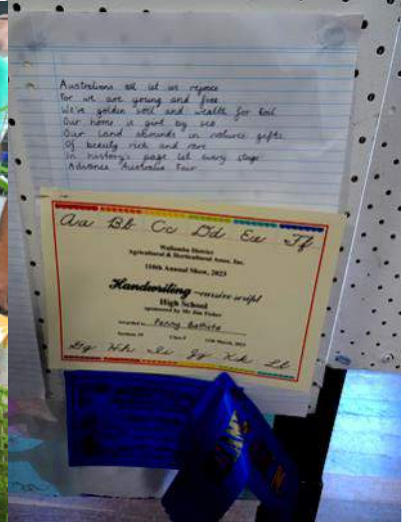 Australians all let us rejoice
For we are young and free
We've golden soil and wealth for toil
Our home is girt by sea
Our Land abounds in natures gifts
Of beauty rich and rare
In history's page let every stage
Advance Australia Fair
Aa Bb Cc Dd Ee Ff
Agricultural & Horticultural Assn. Inc.
110th Annual Show, 2023
Handwriting - cursive script
High School
sponsored by Mr Jim Fisher
Awarded to Penny
Section
Class
March, 2023
Gg Hh Ii Jj Kk Ll